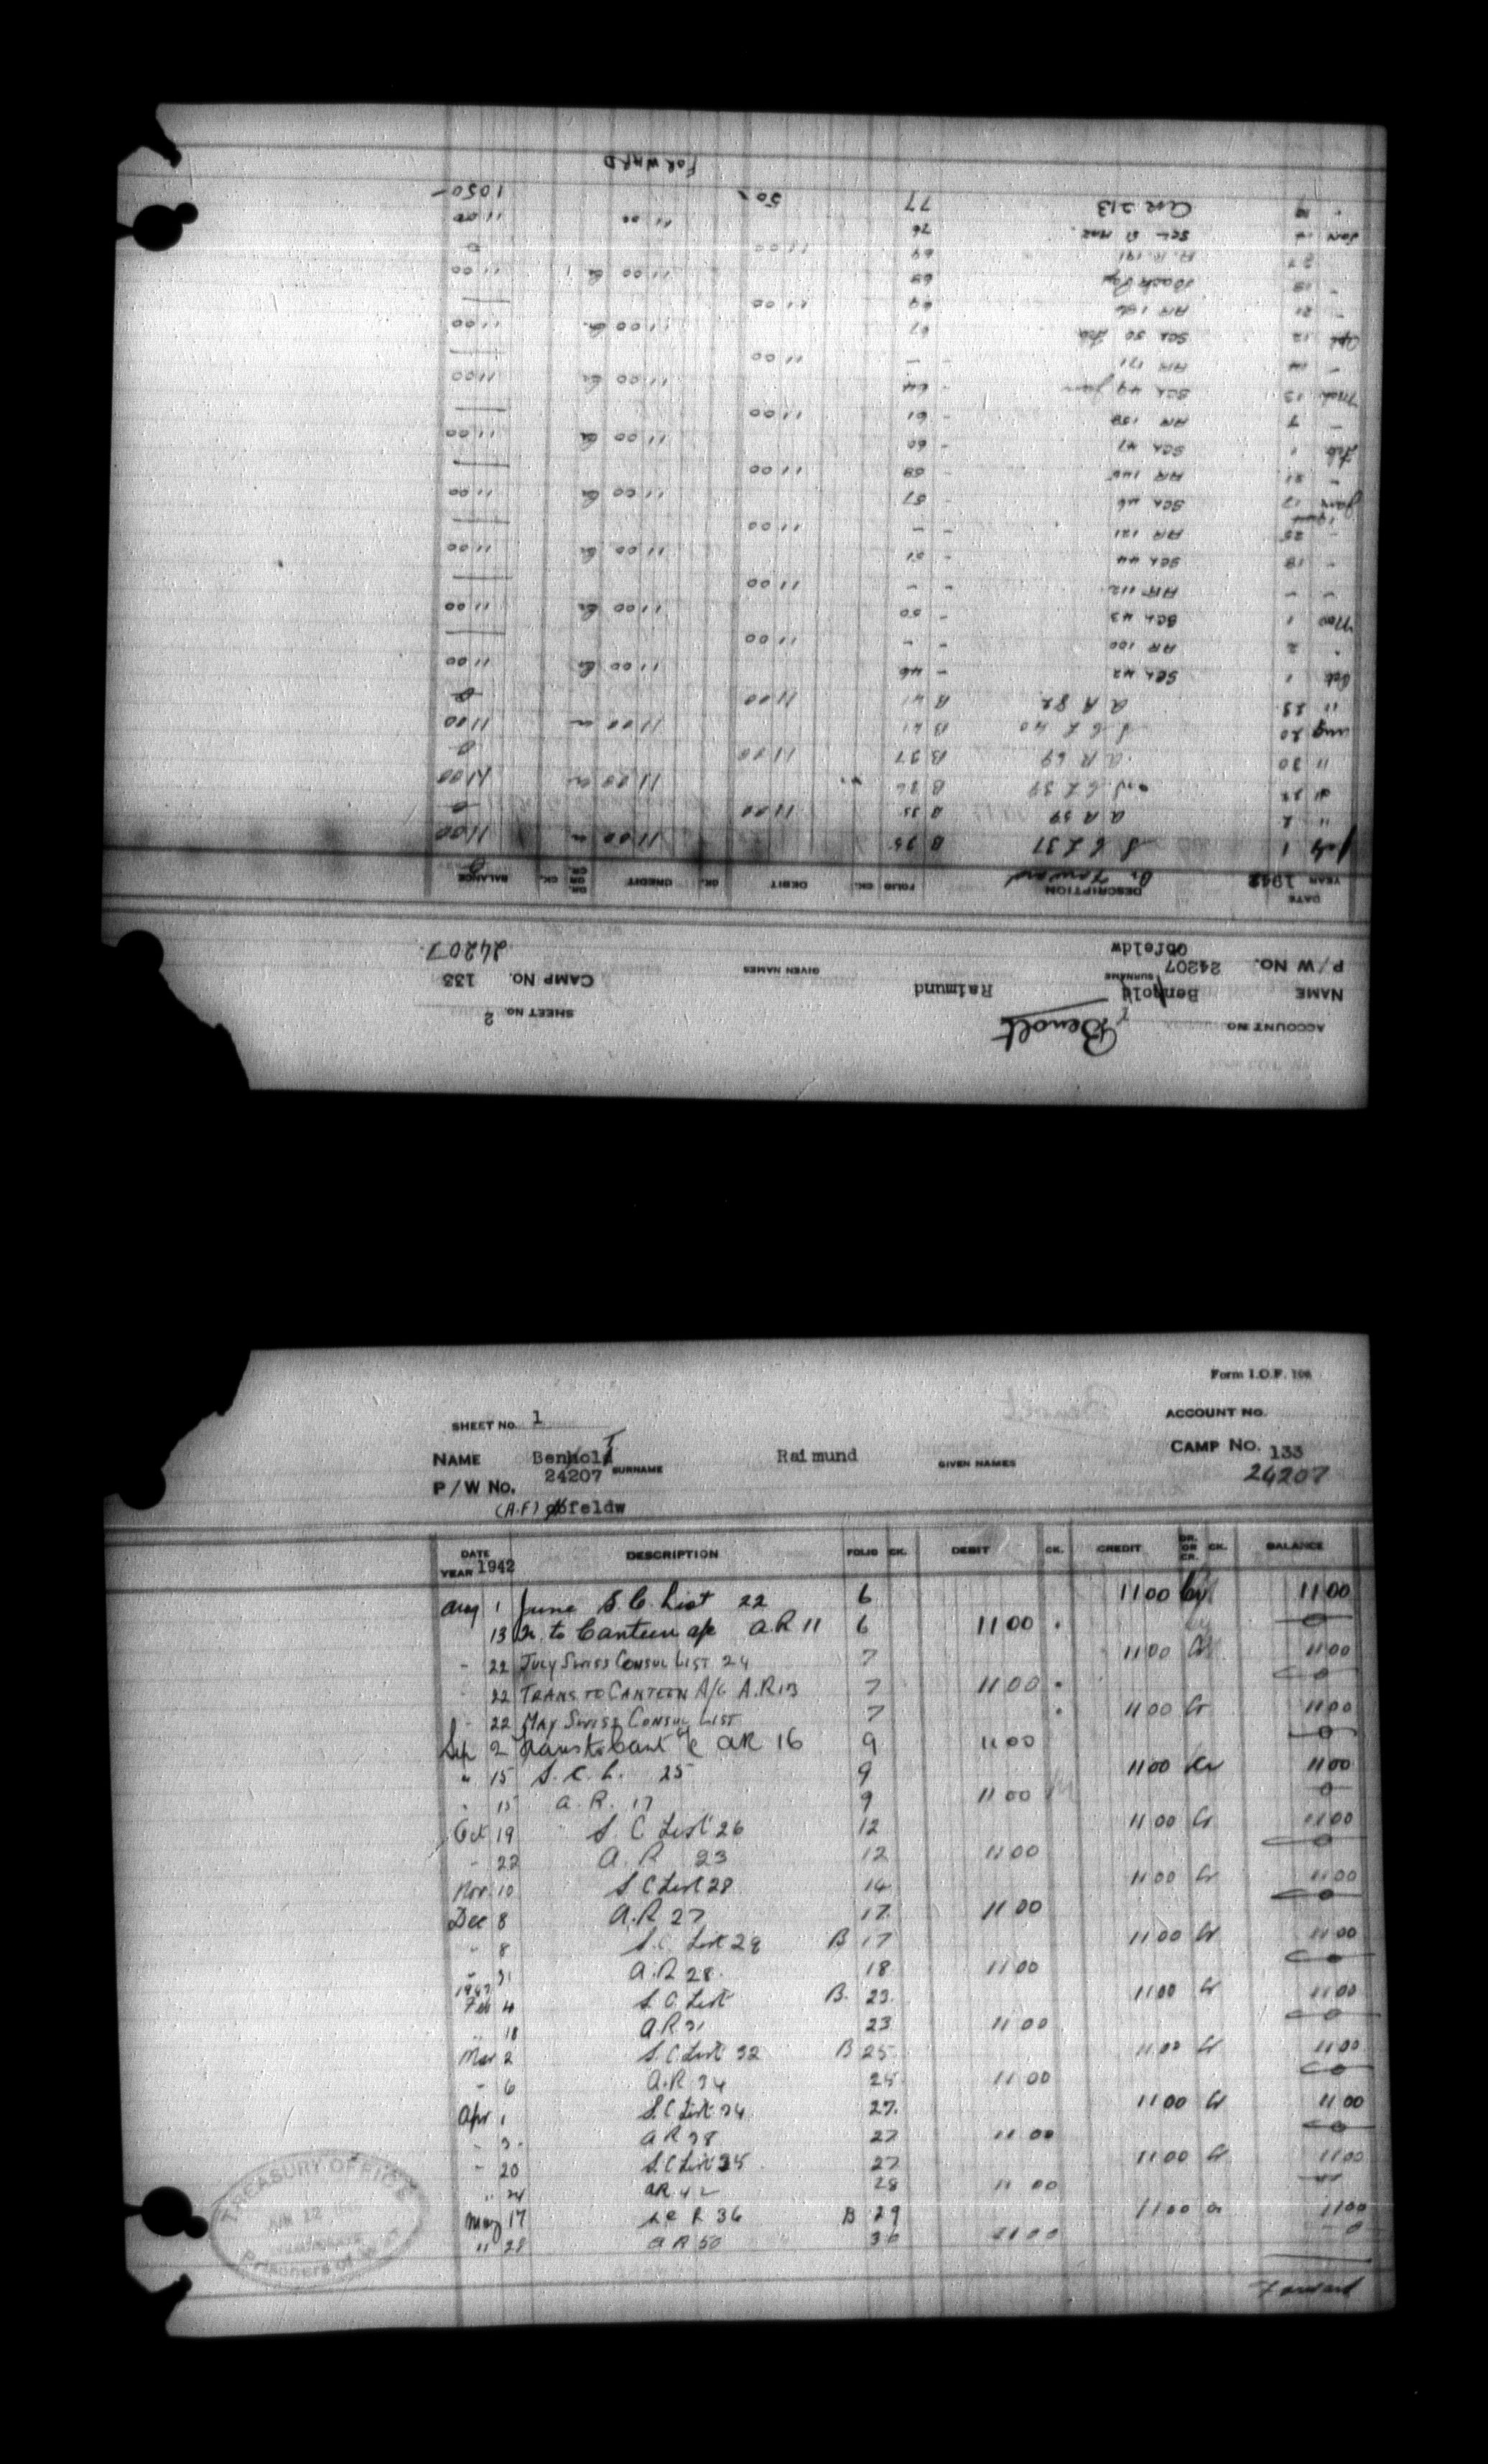 Form I.O.F. 106
SHEET NO. 1 ACCOUNT NO.
NAME Benholt SURNAME Raimund GIVEN NAMES CAMP NO. 133
P/W No. 24207 24207
(A.F) Obfeldw
DATE YEAR 1942 DESCRIPTION FOLIO CK. DEBIT CK. CREDIT DR. OR CR. CK. BALANCE
Aug 1 June S.C. List 22 6 11 00 Cr 11 00
13 Tr. to Canteen a/c A.R 11 6 11 00 0
" 22 JULY SWISS CONSUL LIST 24 7 11 00 Cr 11 00
22 TRANS TO CANTEEN A/C A.R 13 7 11 00 0
" 22 MAY SWISS CONSUL LIST 7 11 00 Cr 11 00
Sep 2 Trans to Cant a/c AR 16 9 11 00 0
" 15 S.C.L. 25 9 11 00 Cr 11 00
" 15 A.R. 17 9 11 00 0
Oct 19 S C List 26 12 11 00 Cr 11 00
" 22 A.R 23 12 11 00 0
Nov 10 S C List 28 14 11 00 Cr 11 00
Dec 8 A.R 27 17 11 00 0
" 8 S.C. List 29 B 17 11 00 Cr 11 00
" 31 A.R 28 18 11 00 0
1943
Feb 4 S.C. List B. 23 11 00 Cr 11 00
" 18 A.R 31 23 11 00 0
Mar 2 S.C. List 32 B 25 11 00 Cr 11 00
" 6 A.R 34 25 11 00 0
Apr 1 S.C List 34 27 11 00 Cr 11 00
" 3 A R 38 27 11 00 0
" 20 S.C List 35 27 11 00 Cr 11 00
" 24 AR 42 28 11 00
May 17 S C L 36 B 29 11 00 Cr 11 00
" 28 A R 50 30 11 00 0
Forward
TREASURY OFFICE
Prisoners of War
ACCOUNT NO Benolt SHEET NO. 2
NAME Benhold SURNAME Raimund GIVEN NAMES CAMP NO. 133
P/W NO. 24207 24207
Obfeldw
DATE YEAR 1943 DESCRIPTION FOLIO CK. DEBIT CK. CREDIT DR. OR CR. CK. BALANCE
Forward 0
July 1 S C L 37 B 35 11 00 Cr 11 00
" 2 A R 59 B 35 11 00 0
" 22 S.C L 39 B 36 11 00 Cr 11 00
" 30 A R 69 B 37 11 00 0
Aug 20 S C L 40 B 41 11 00 Cr 11 00
" 25 A R 82 B 41 11 00 0
Oct 1 SCL 42 - 46 11 00 Cr 11 00
" 2 AR 100 - - 11 00
Nov 1 SCL 43 - 50 11 00 Cr 11 00
- - AR 112 - - 11 00
- 18 SCL 44 - 51 11 00 Cr 11 00
- 25 AR 121 - - 11 00
1944
Jan 17 SCL 46 - 57 11 00 Cr 11 00
- 21 AR 146 - 58 11 00
Feb 1 SCL 47 - 60 11 00 Cr 11 00
- 7 AR 158 - 61 11 00
Mch 13 SCL 49 Jan - 64 11 00 Cr 11 00
- 14 AR 171 - - 11 00
Apl 12 SCL 50 Feb 67 11 00 Cr 11 00
- 21 AR 186 69 11 00
- 18 Back Pay 68 11 00 Cr 11 00
27 A.R. 191 69 11 00 0
SCL 51 Mar. 76 11 00 11 00
AR 213 77 50 1050
FORWARD